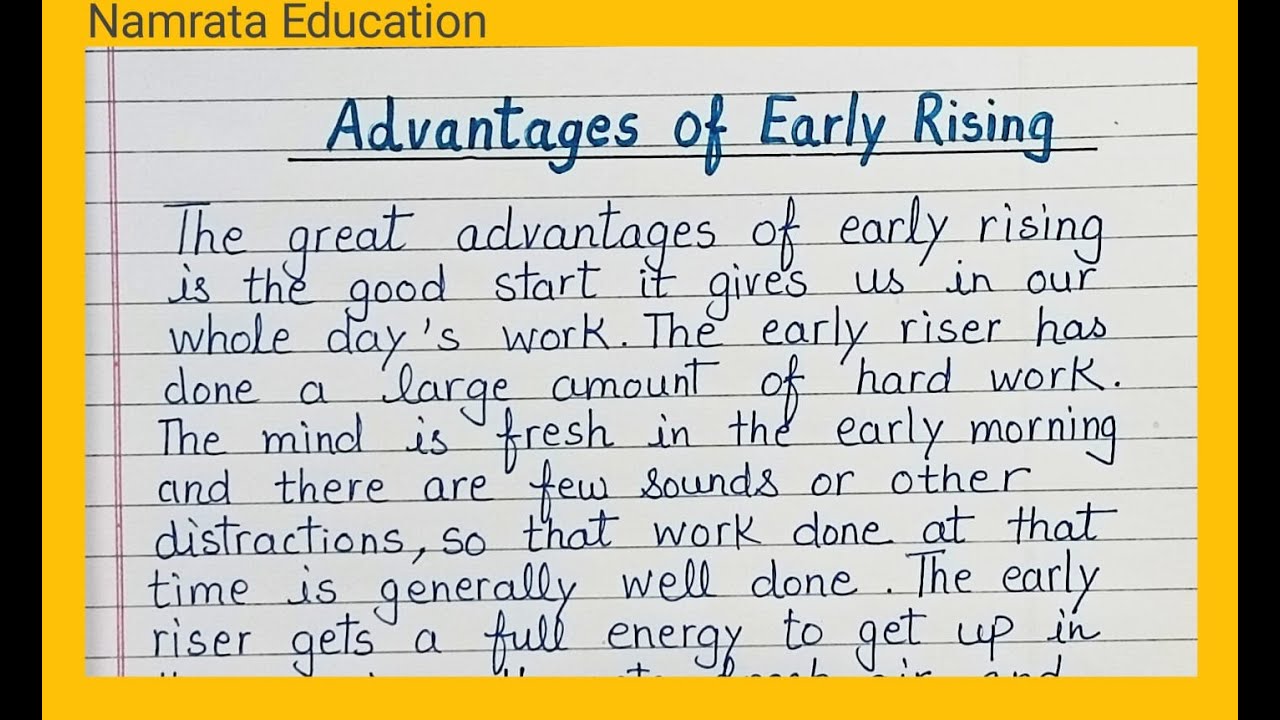 Namrata Education
Advantages of Early Rising
The great advantages of early rising
is the good start it gives us in our
whole day's work. The early riser has
done a large amount of hard work.
The mind is fresh in the early morning
and there are few sounds or other
distractions, so that work done at that
time is generally well done. The early
riser gets a full energy to get up in
fresh air and